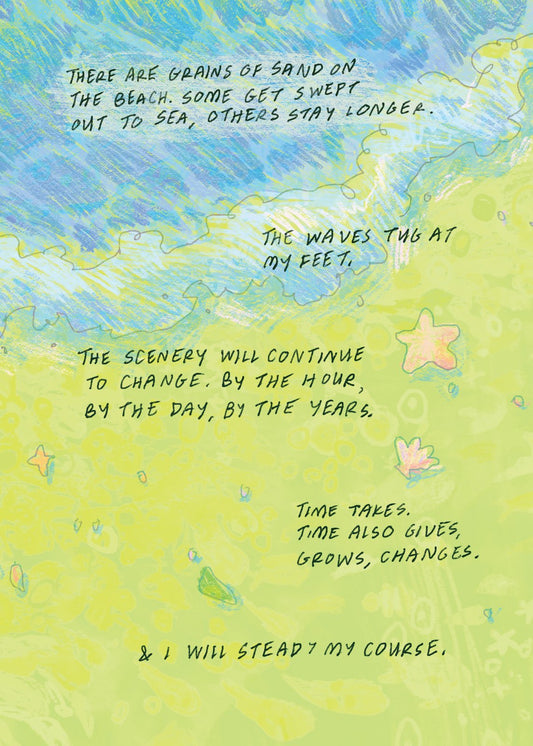 THERE ARE GRAINS OF SAND ON
THE BEACH. SOME GET SWEPT
OUT TO SEA, OTHERS STAY LONGER.
THE WAVES TUG AT
MY FEET.
THE SCENERY WILL CONTINUE
TO CHANGE. BY THE HOUR,
BY THE DAY, BY THE YEARS.
TIME TAKES.
TIME ALSO GIVES,
GROWS, CHANGES.
& I WILL STEADY MY COURSE.